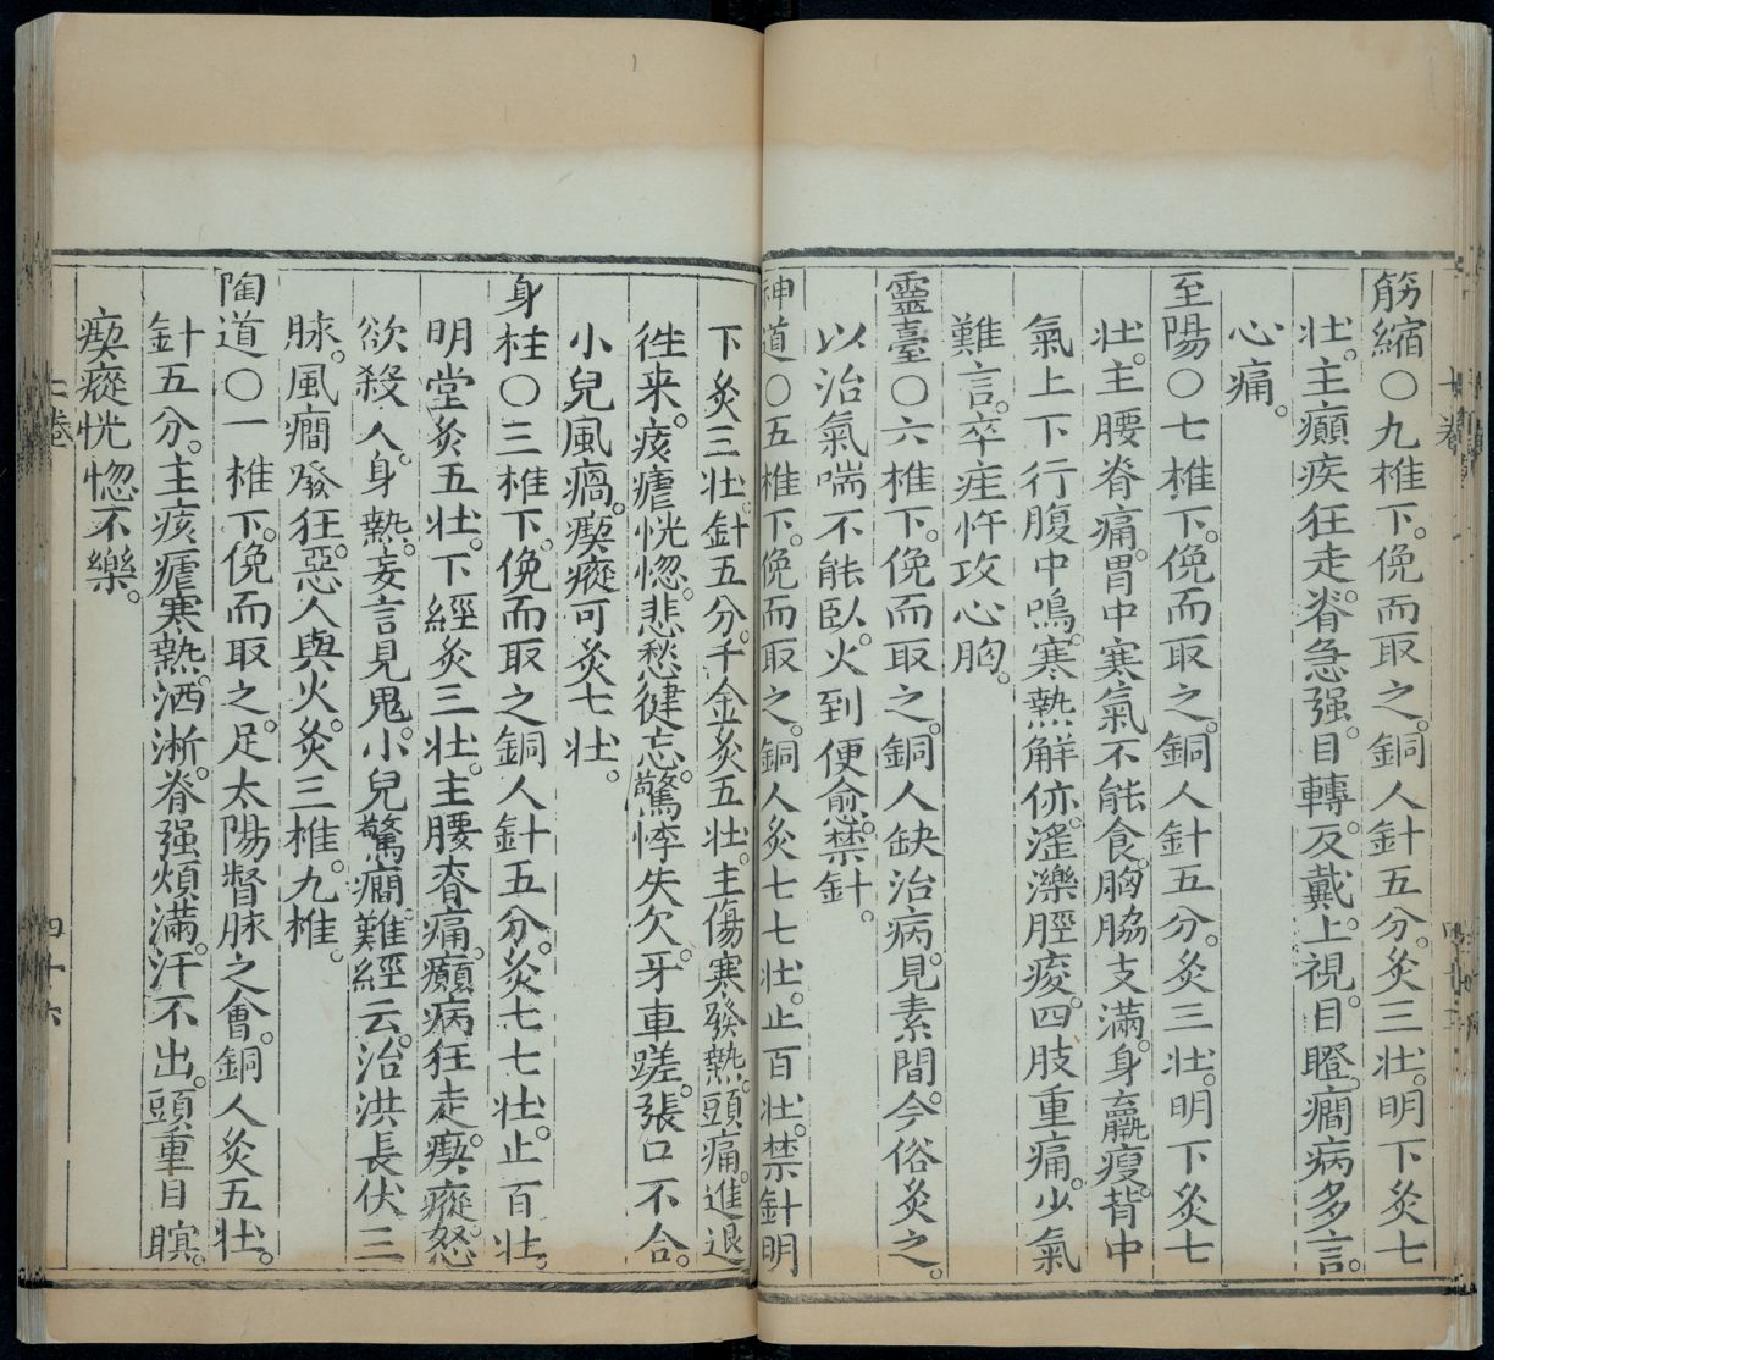 筋縮○九椎下。俛而取之。銅人針五分。灸三壯。明下灸七
壯。主癲疾狂走。脊急强。目轉。反戴。上視。目瞪。癎病多言。
心痛。
至陽○七椎下。俛而取之。銅人針五分。灸三壯。明下灸七
壯。主腰脊痛。胃中寒氣不能食。胸脇支滿。身羸瘦。背中
氣上下行腹中鳴。寒熱解㑊。淫濼脛痠。四肢重痛。少氣
難言。卒疰忤攻心胸。
靈臺○六椎下。俛而取之。銅人缺治病。見素問。今俗灸之。
以治氣喘不能臥。火到便愈。禁針。
神道○五椎下。俛而取之。銅人灸七七壯。止百壯。禁針明
下灸三壯。針五分。千金灸五壯。主傷寒發熱。頭痛。進退
徃来。痎瘧恍惚。悲愁健忘。驚悸失欠。牙車蹉。張口不合。
小兒風癇。瘈瘲可灸七壯。
身柱○三椎下。俛而取之銅人針五分。灸七七壯。止百壯。
明堂灸五壯。下經灸三壯。主腰脊痛。癲病狂走。瘈瘲。怒
欲殺人。身熱。妄言見鬼。小兒驚癎。難經云。治洪長伏三
脉。風癎發狂。惡人與火。灸三椎。九椎。
陶道○一椎下。俛而取之。足太陽督脉之會。銅人灸五壯。
針五分。主痎瘧寒熱。洒淅。脊强煩滿。汗不出。頭重目瞑。
瘈瘲恍惚不樂。
七卷
四十六